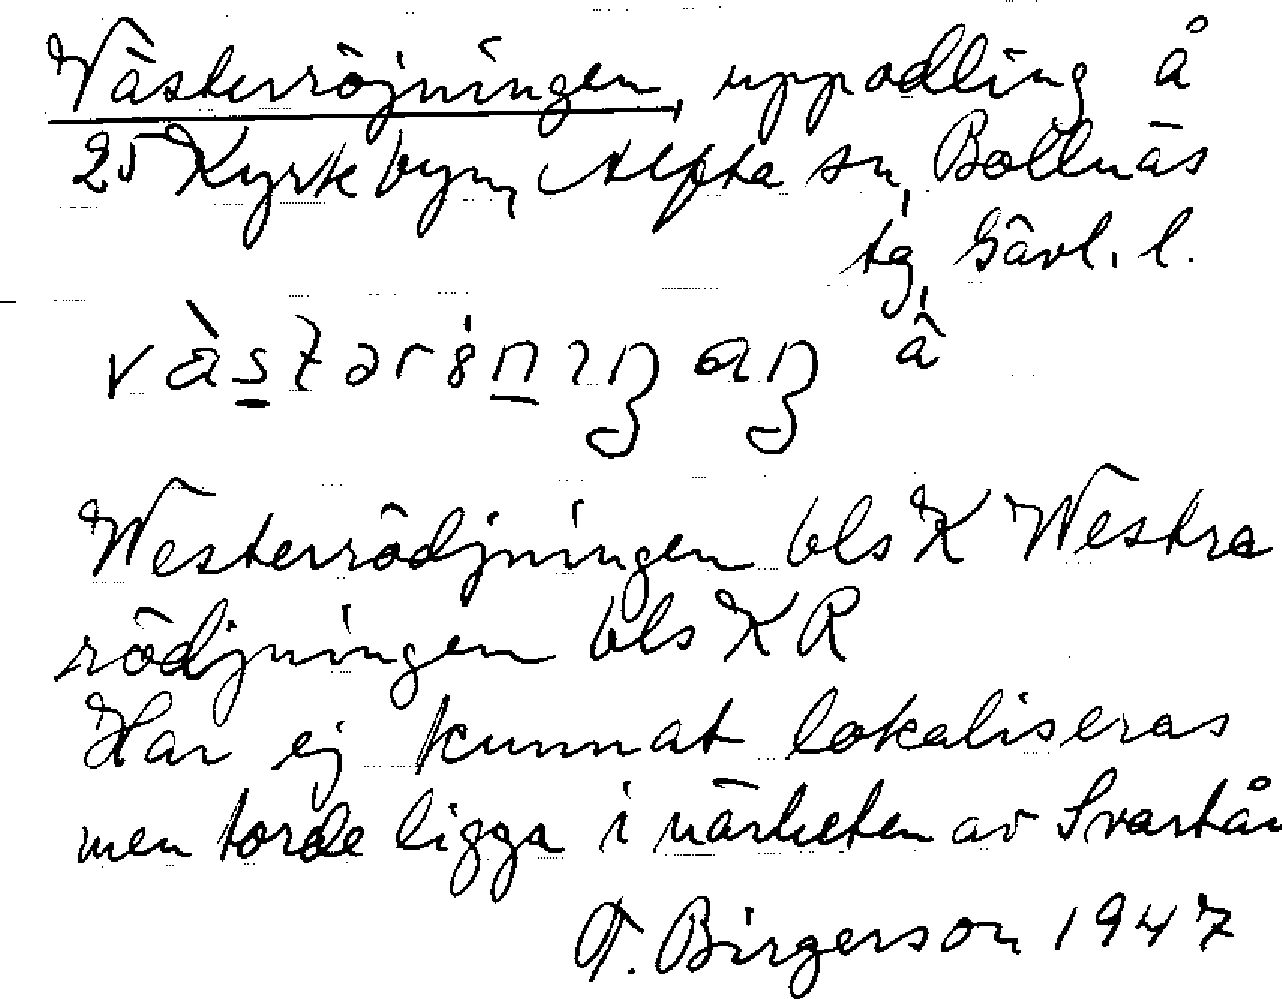 Västerröjningen, uppodling å
25 Kyrkbyn, Alfta sn, Bollnäs
tg, Gävl. l.
Westerrödjningen bls K Westra
rödjningen bls K R
Har ej kunnat lokaliseras
men torde ligga i närheten av Svartån
T. Birgerson 1947